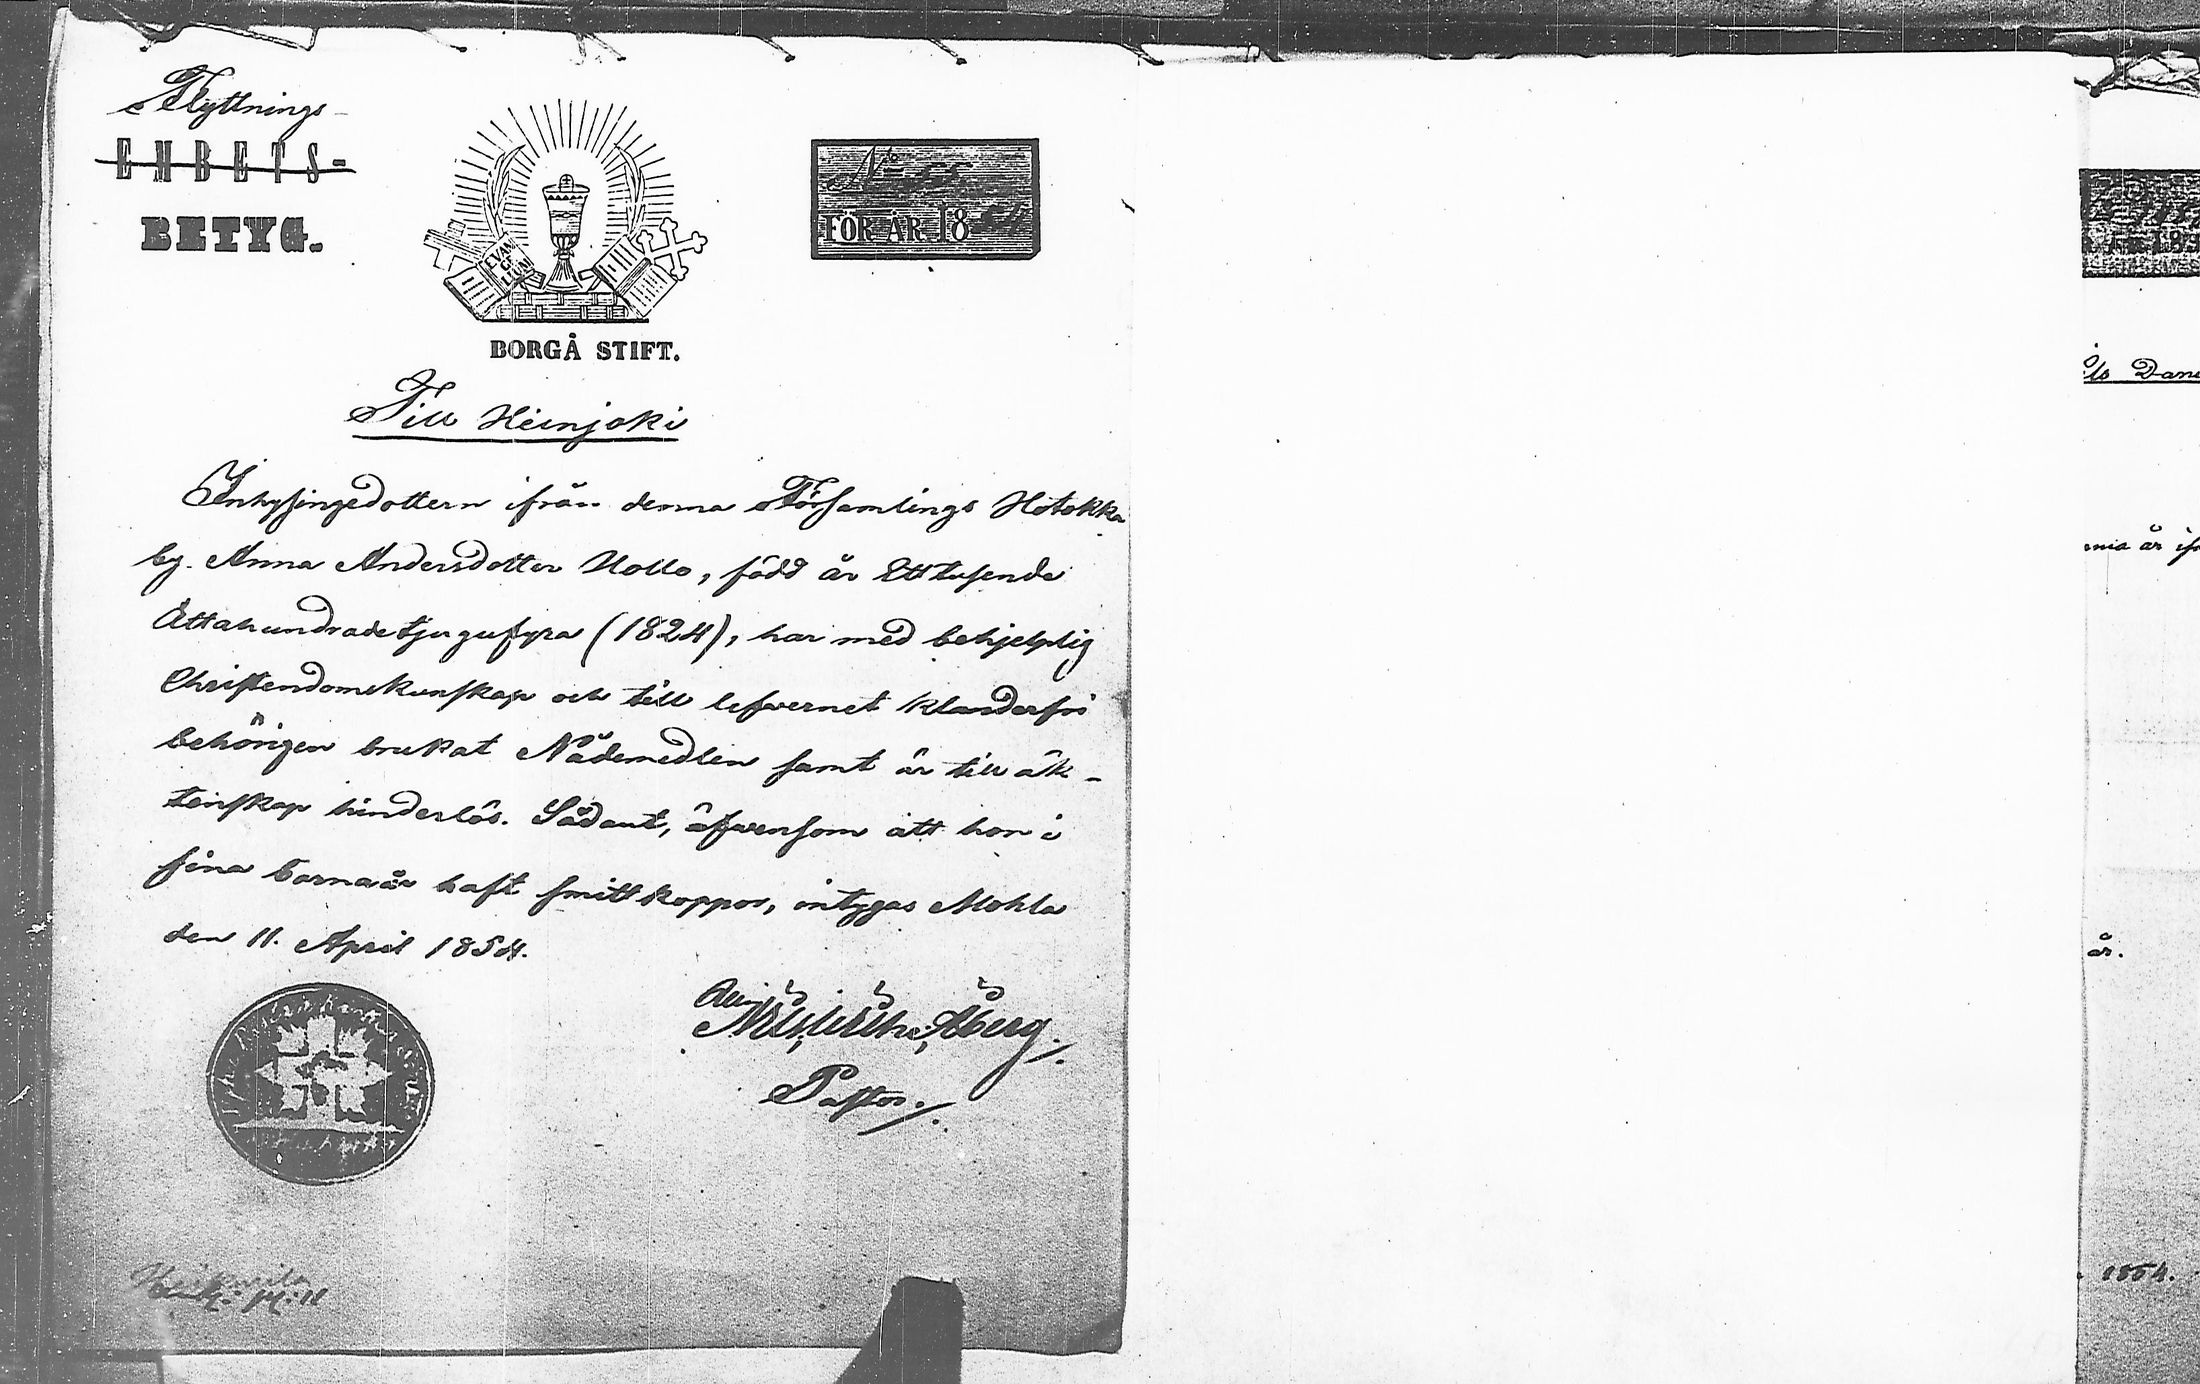 Flyttnings-
EMBETS-
BETYG.
EVAN
GE
LIUM
BORGÅ STIFT.
No
FÖR ÅR 1854
Till Heinjoki
Inhysingedottern ifrån denna Församlings Hotokka
by. Anna Andersdotter Uollo, född år Ett tusende
Åttahundradetjugufyra (1824), har med behjelplig
Christendomskunskap och till lefvernet klanderfri
behörigen brukat Nådemedlen samt är till äk-
tenskap hinderlös. Sådant, äfvensom att hon i
sina barnaår haft smittkoppor, intygas Mohla
den 11. April 1854.
Åberg.
Pastor.
Dani
mia är if
år.
1854.